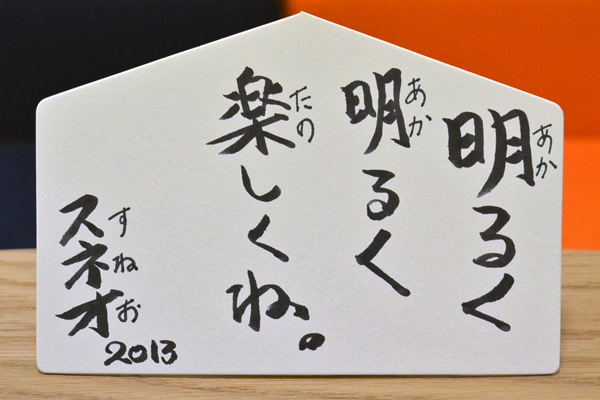 明るく
あか
明るく
あか
楽しくね。
たの
スネオ
すねお
2013